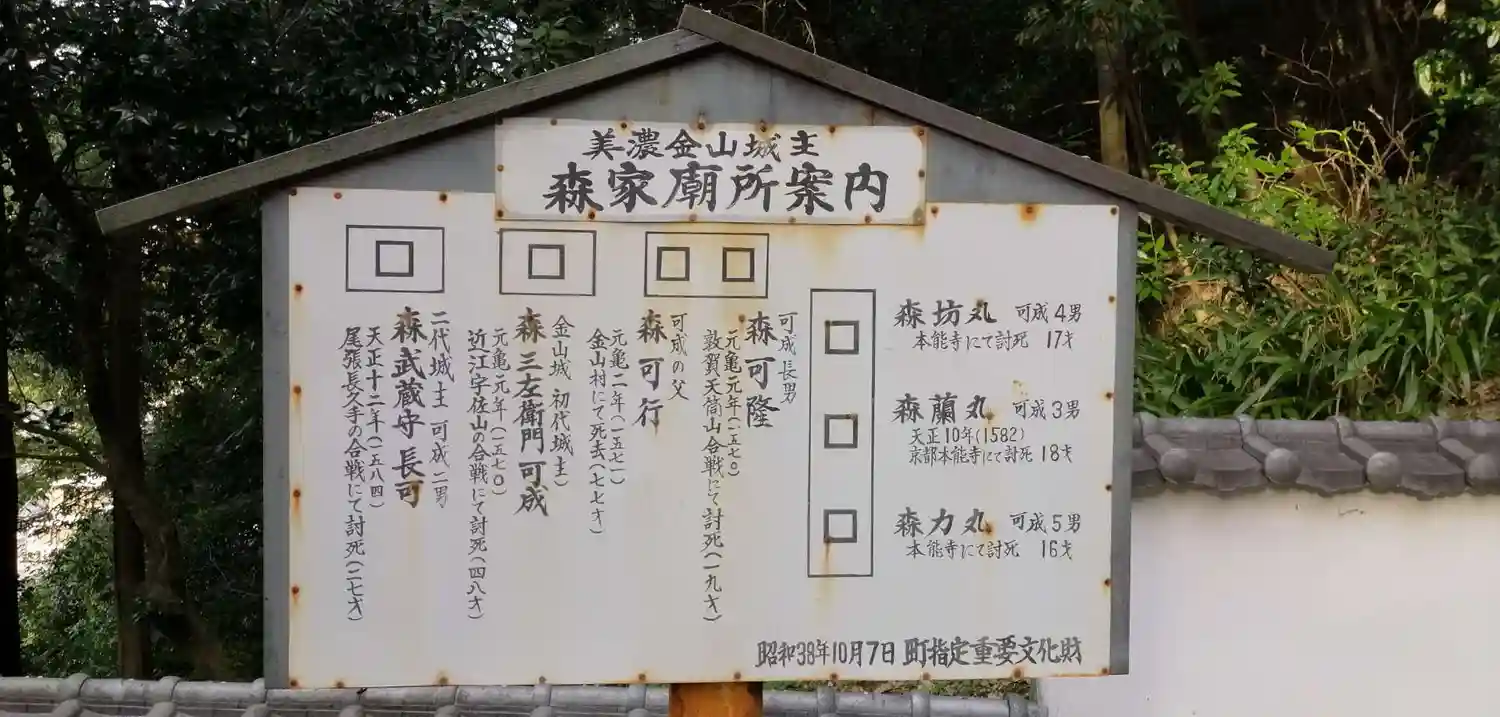 美濃金山城主
森家廟所案内
森坊丸 可成4男
本能寺にて討死 17才
森蘭丸 可成3男
天正10年(1582)
京都本能寺にて討死 18才
森力丸 可成5男
本能寺にて討死 16才
可成長男
森可隆
元亀元年(一五七〇)
敦賀天筒山合戦にて討死(一九才)
可成の父
森可行
元亀二年(一五七一)
金山村にて死去(七七才)
金山城 初代城主)
森三左衛門可成
元亀元年(一五七〇)
近江宇佐山の合戦にて討死(四八才)
二代城主 可成二男
森武蔵守長可
天正十二年(一五八四)
尾張長久手の合戦にて討死(二七才)
昭和38年10月7日 町指定重要文化財